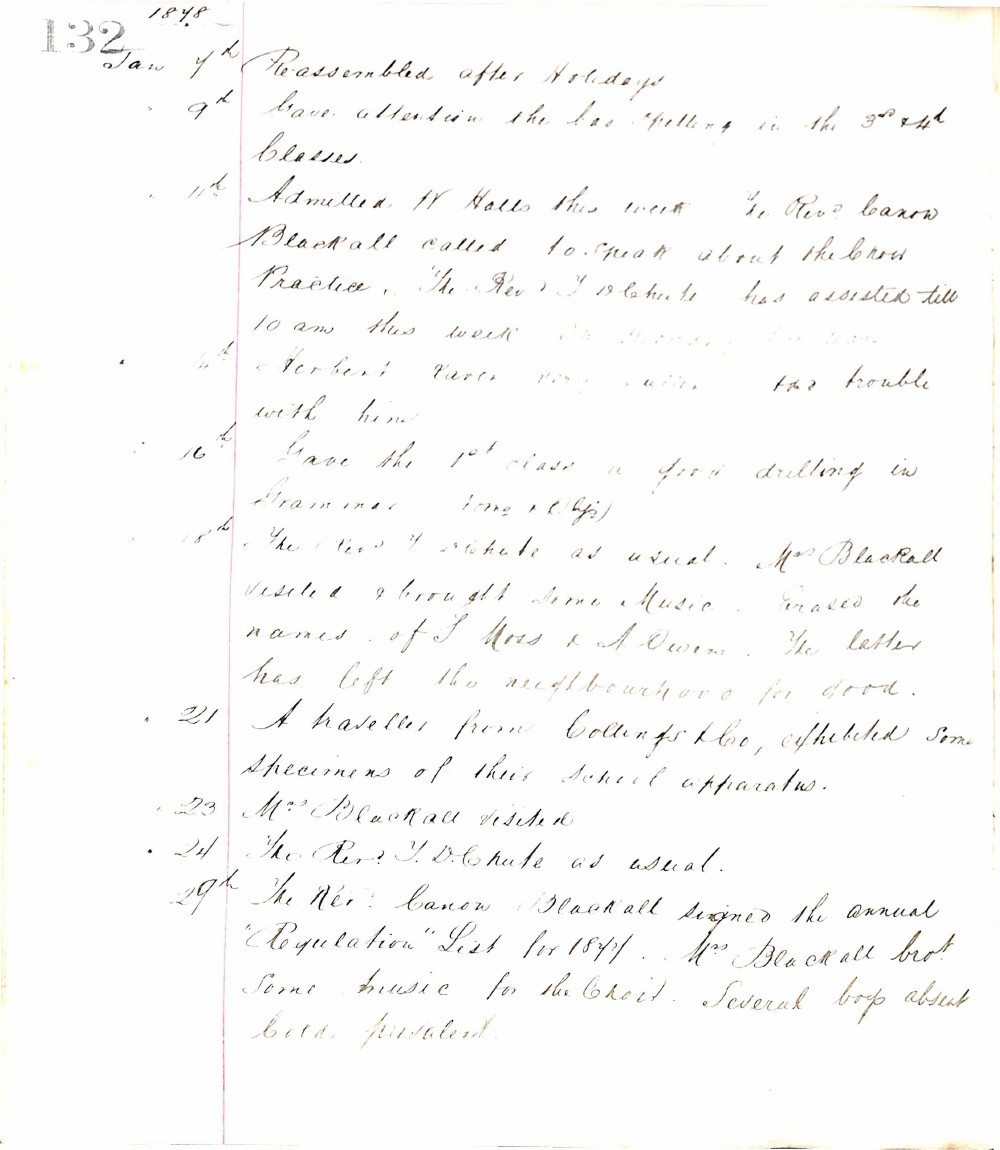 132
1878
Jan 7th Reassembled after Holidays
" 9th Gave attention the bad spelling in the 3rd & 4th
Classes.
" 11th Admitted W Halls this week The Revd Canon
Blackall called to speak about the Choir
Practice. The Revd T D Chute has assisted till
10 am this week
Herbert very trouble
with him
16th Gave the 1st class a good drilling in
Grammar
18th The Revd T D Chute as usual. Mrs Blackall
visited & brought some Music. Erased the
names of S Moss & A Owens. The latter
has left the neighbourhood for good.
" 21 A traveller from Collings & Co, exhibited some
specimens of their school apparatus.
" 23 Mrs Blackall visited
" 24 The Revd T. D. Chute as usual.
29th The Revd Canon Blackall signed the annual
"Regulation" List for 1877. Mrs Blackall brot
some music for the Choir. Several boys absent
Colds prevalent.